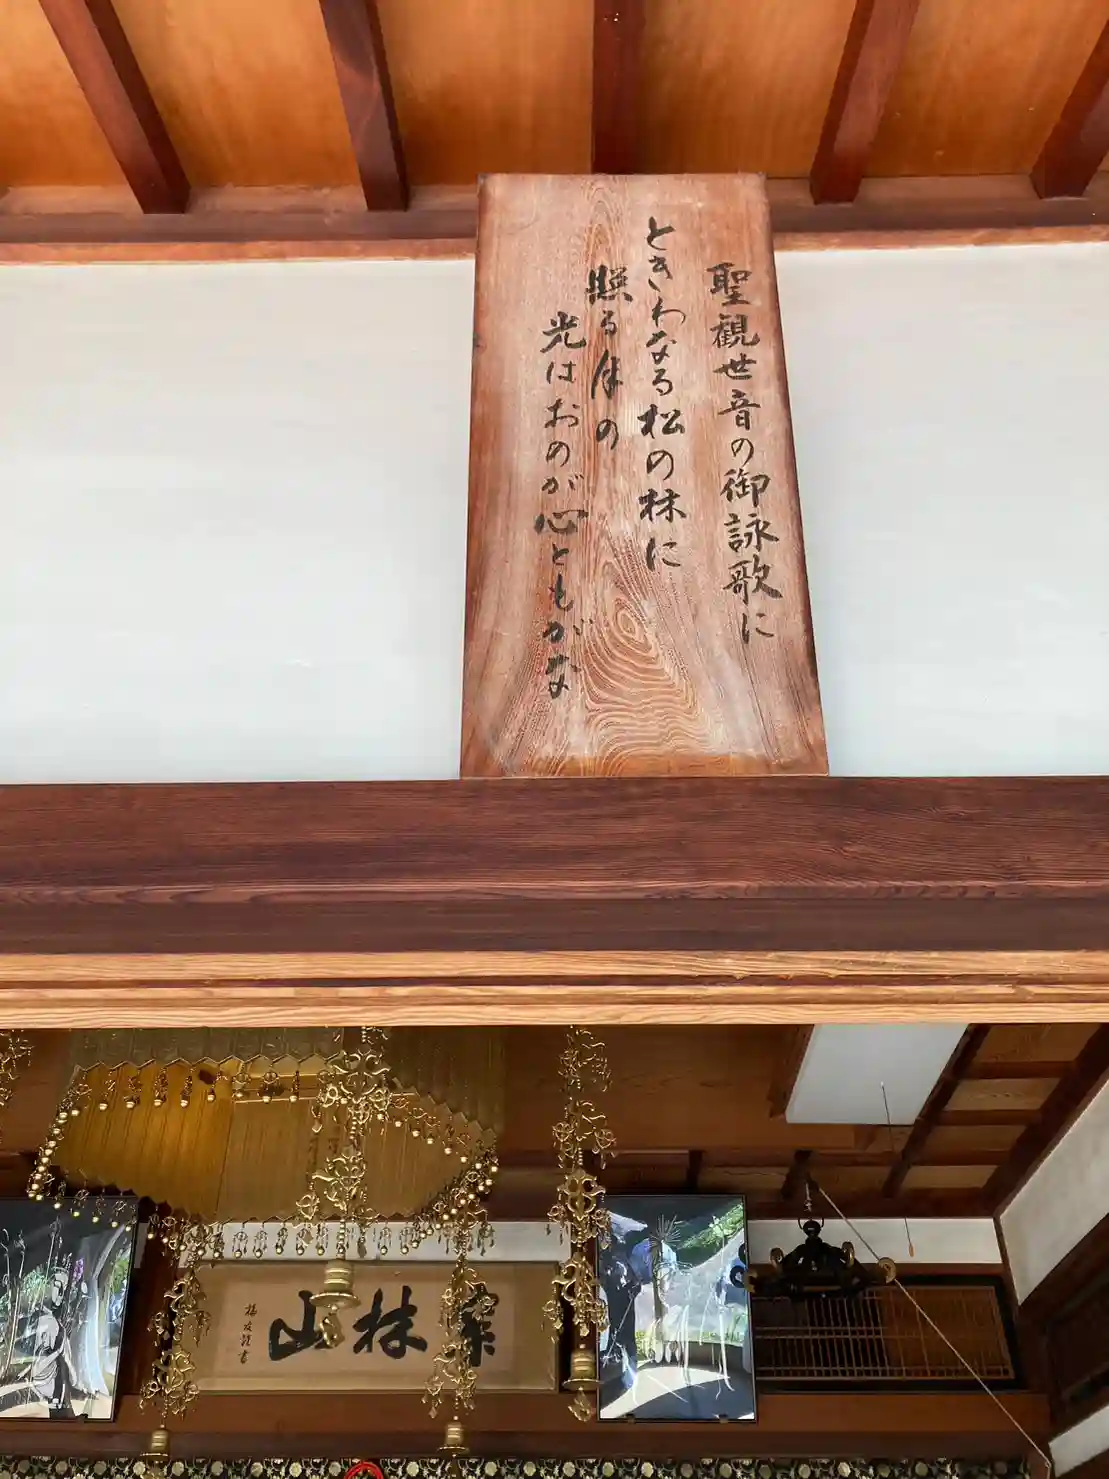 聖観世音の御詠歌に
ときわなる松の林に
照る月の
光はおのが心ともがな
林山